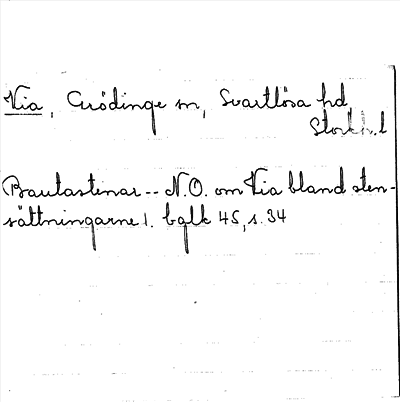 Via, Grödinge sn, Svartlösa hd,
Stockh. l
Bautastenar -- N.O. om Via bland sten-
sättningarne 1. bglk 45, s. 34